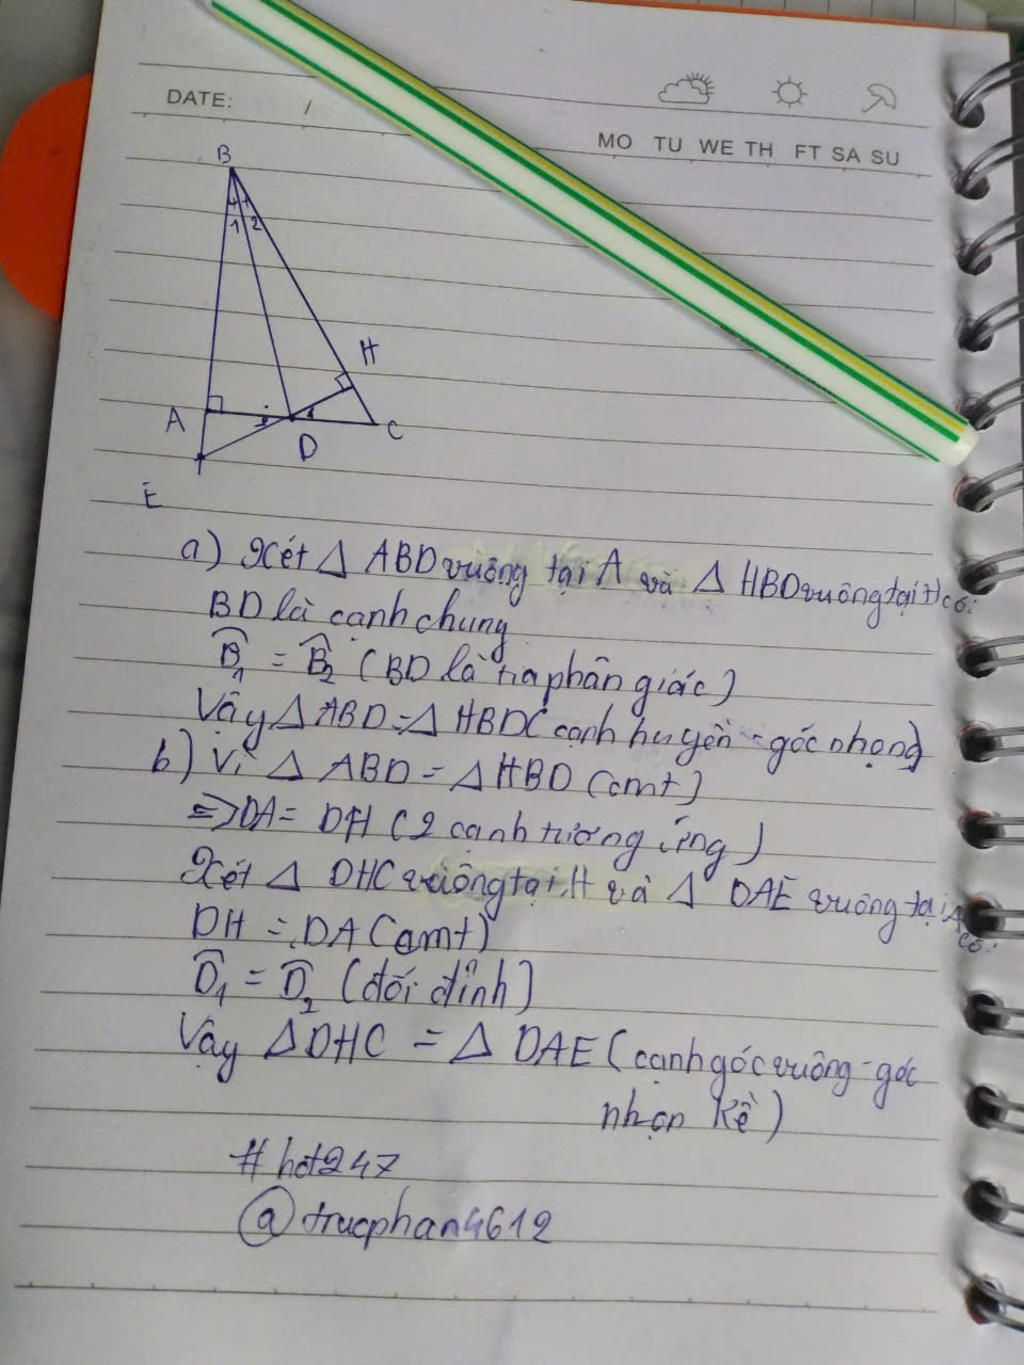 DATE: /
MO TU WE TH FT SA SU
B
1 2
H
A
D
C
E
a) Xét △ ABD vuông tại A và △ HBD vuông tại H có:
BD là cạnh chung
B̂₁ = B̂₂ (BD là tia phân giác)
Vậy △ ABD = △ HBD (cạnh huyền - góc nhọn)
b) Vì △ ABD = △ HBD (cmt)
=> DA = DH (2 cạnh tương ứng)
Xét △ DHC vuông tại H và △ DAE vuông tại A có:
DH = DA (cmt)
D̂₁ = D̂₂ (đối đỉnh)
Vậy △ DHC = △ DAE (cạnh góc vuông - góc
nhọn kề)
#hot247
@trucphan4612